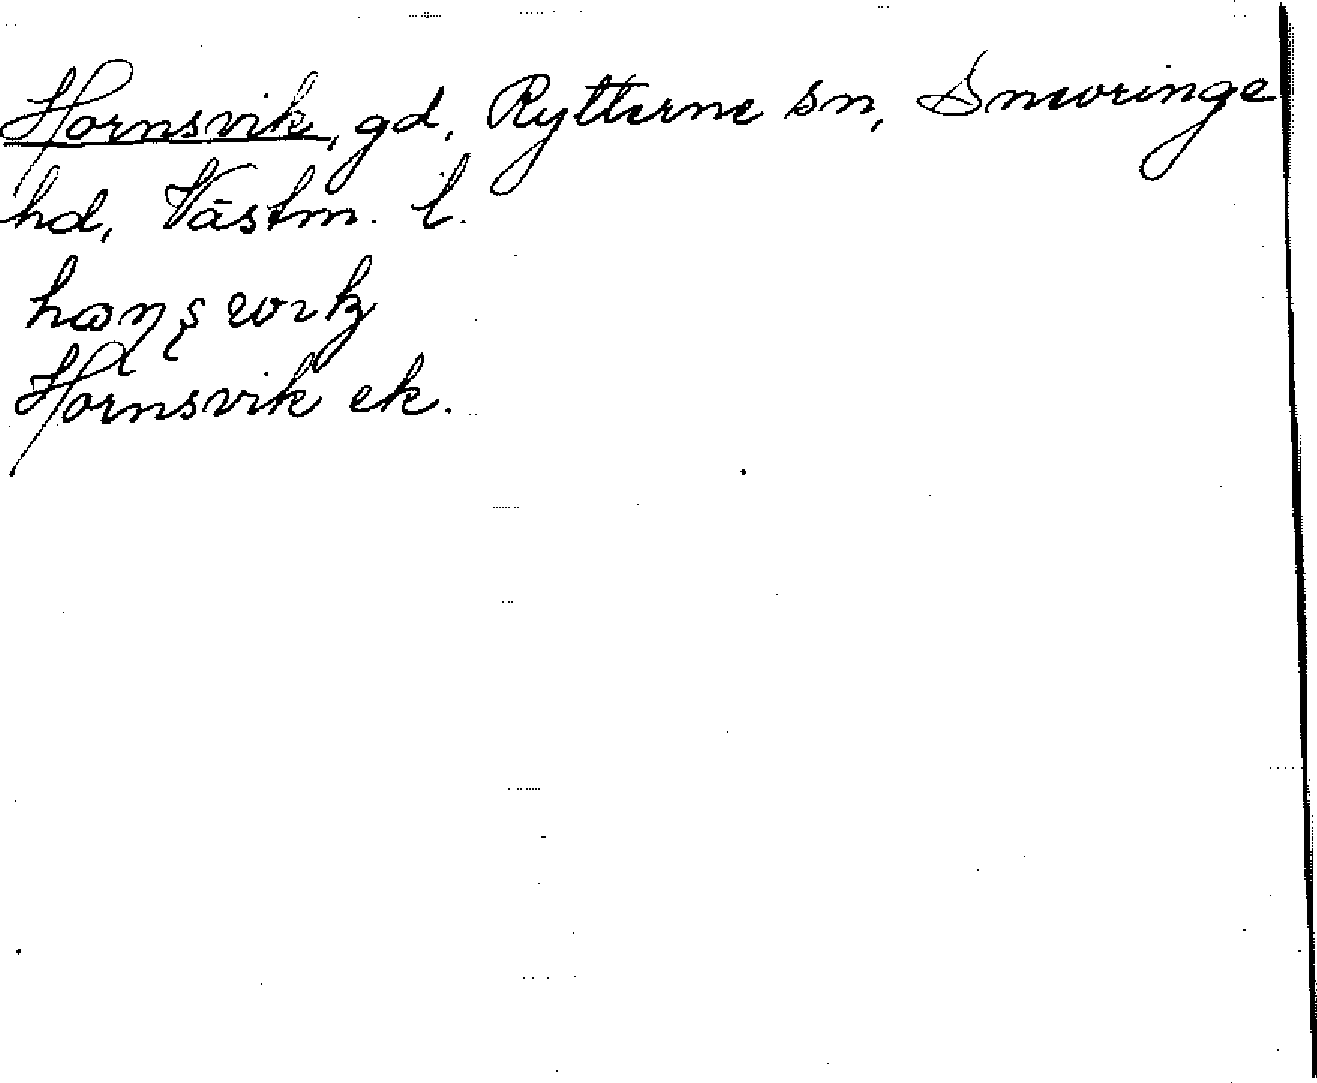 Hornsvik, gd, Rytterne sn, Snevringe
hd, Västm. l.
Hornsvik ek.